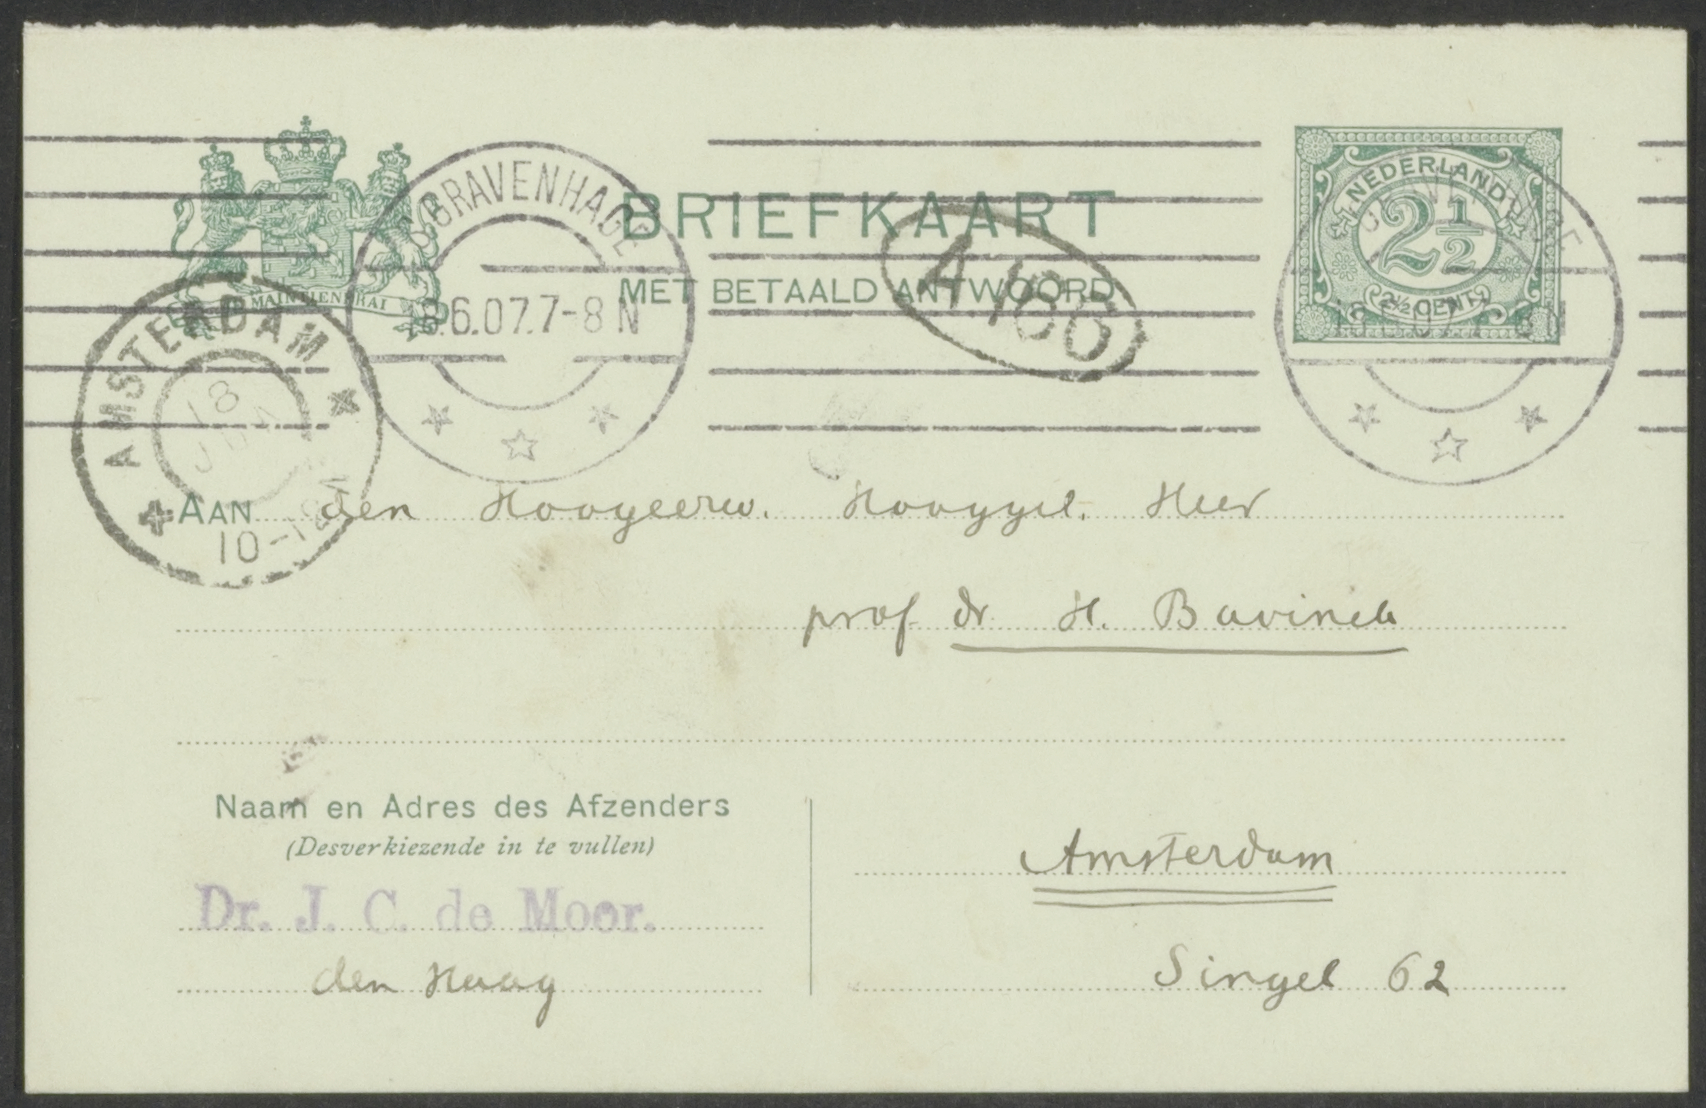 BRIEFKAART
MET BETAALD ANTWOORD
MAINTIENDRAI
NEDERLAND
2 1/2
2½ CENT
'S GRAVENHAGE
8.6.07.7-8 N
AMSTERDAM
18
10-12
A 166
AAN den Hoogeerw. Hooggel. Heer
prof dr H. Bavinck
Naam en Adres des Afzenders
(Desverkiezende in te vullen)
Dr. J. C. de Moor.
den Haag
Amsterdam
Singel 62